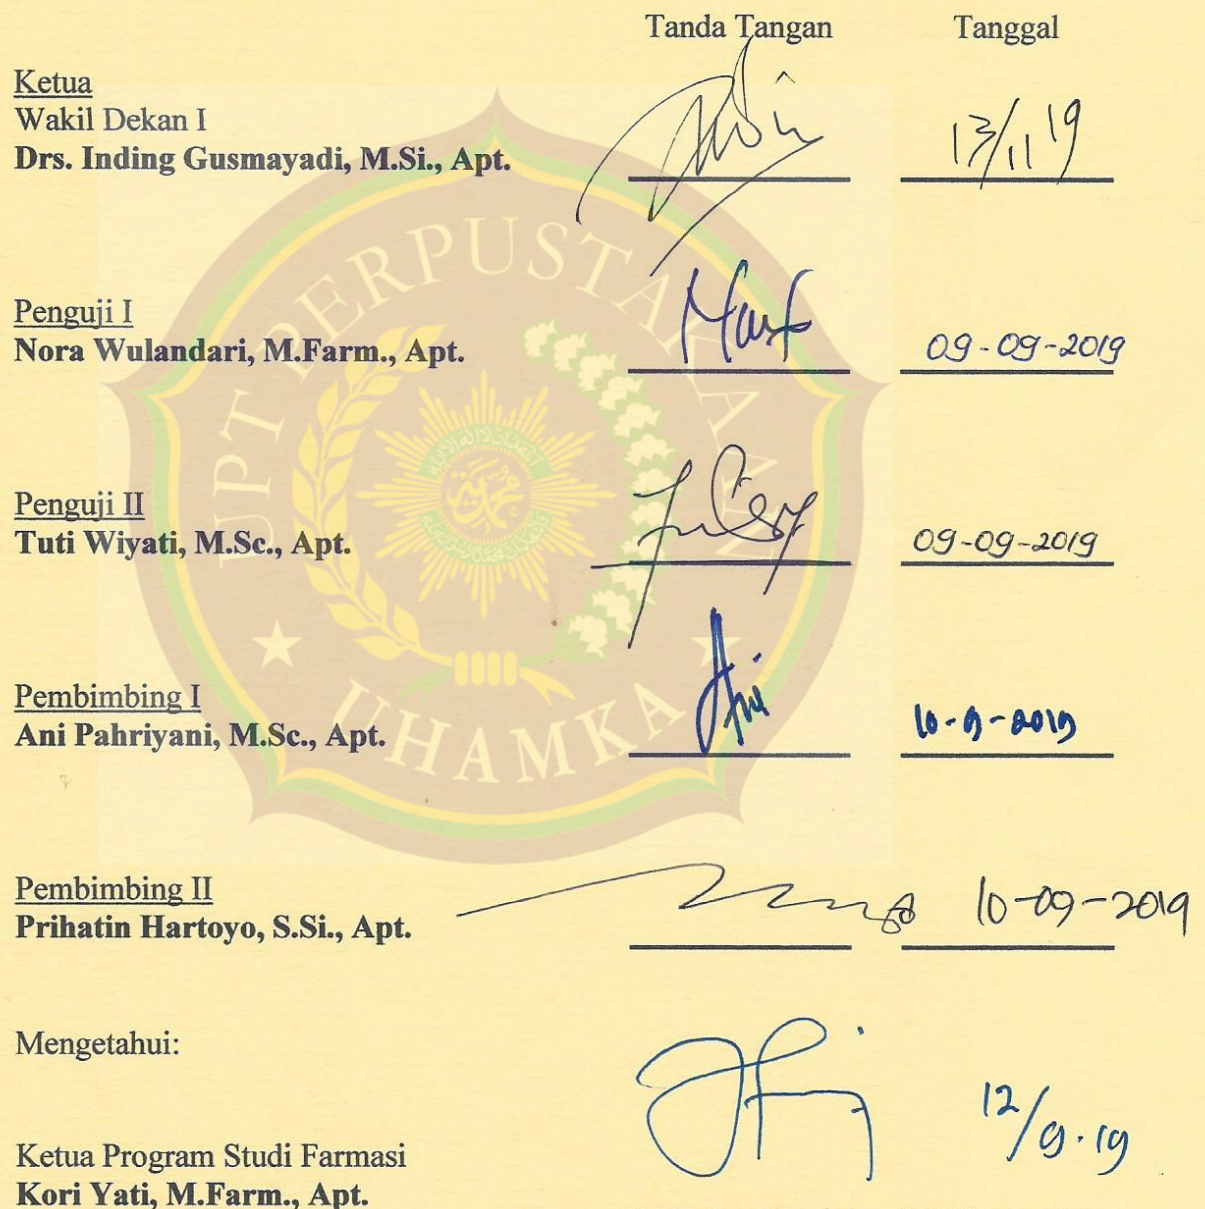 Tanda Tangan Tanggal
Ketua
Wakil Dekan I
Drs. Inding Gusmayadi, M.Si., Apt. 13/11 19
Penguji I
Nora Wulandari, M.Farm., Apt. 09-09-2019
Penguji II
Tuti Wiyati, M.Sc., Apt. 09-09-2019
Pembimbing I
Ani Pahriyani, M.Sc., Apt. Ani 10-9-2019
Pembimbing II
Prihatin Hartoyo, S.Si., Apt. 10-09-2019
Mengetahui:
12/9.19
Ketua Program Studi Farmasi
Kori Yati, M.Farm., Apt.
UPT PERPUSTAKAAN
UHAMKA